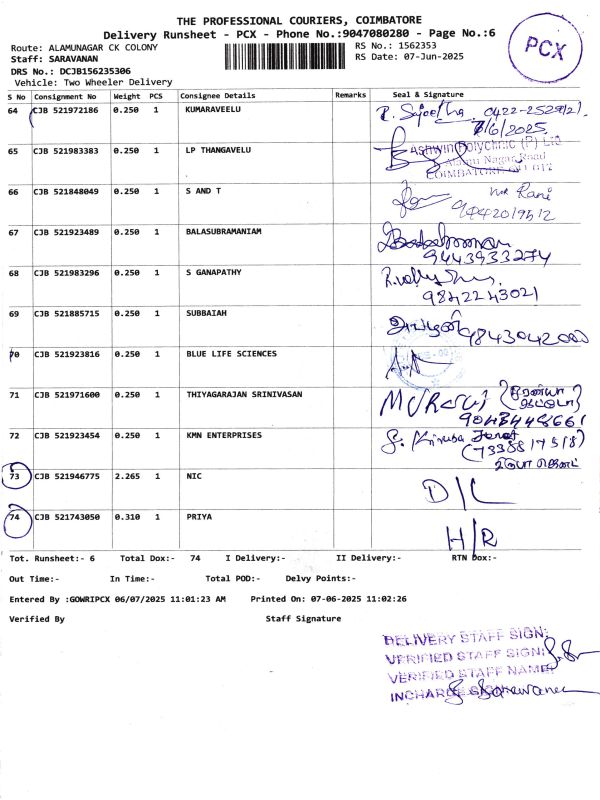 THE PROFESSIONAL COURIERS, COIMBATORE
Delivery Runsheet - PCX - Phone No.:9047080280 - Page No.:6
PCX
Route: ALAMUNAGAR CK COLONY
RS No.: 1562353
Staff: SARAVANAN
RS Date: 07-Jun-2025
DRS No.: DCJB156235306
Vehicle: Two Wheeler Delivery
S No Consignment No Weight PCS Consignee Details Remarks Seal & Signature
64 CJB 521972186 0.250 1 KUMARAVEELU
7/6/2025
65 CJB 521983383 0.250 1 LP THANGAVELU Ashwin Polyclinic (P) Ltd
Alamu Nagar Road
66 CJB 521848049 0.250 1 S AND T Rani
9442019512
67 CJB 521923489 0.250 1 BALASUBRAMANIAM
9443933274
68 CJB 521983296 0.250 1 S GANAPATHY
9842243021
69 CJB 521885715 0.250 1 SUBBAIAH
70 CJB 521923816 0.250 1 BLUE LIFE SCIENCES
71 CJB 521971600 0.250 1 THIYAGARAJAN SRINIVASAN
72 CJB 521923454 0.250 1 KMN ENTERPRISES
73 CJB 521946775 2.265 1 NIC D/L
74 CJB 521743050 0.310 1 PRIYA H/R
Tot. Runsheet:- 6 Total Dox:- 74 I Delivery:- II Delivery:- RTN Dox:-
Out Time:- In Time:- Total POD:- Delvy Points:-
Entered By :GOWRIPCX 06/07/2025 11:01:23 AM Printed On: 07-06-2025 11:02:26
Verified By Staff Signature
DELIVERY STAFF SIGN:
VERIFIED STAFF SIGN:
VERIFIED STAFF NAME:
INCHARGE SIGN: